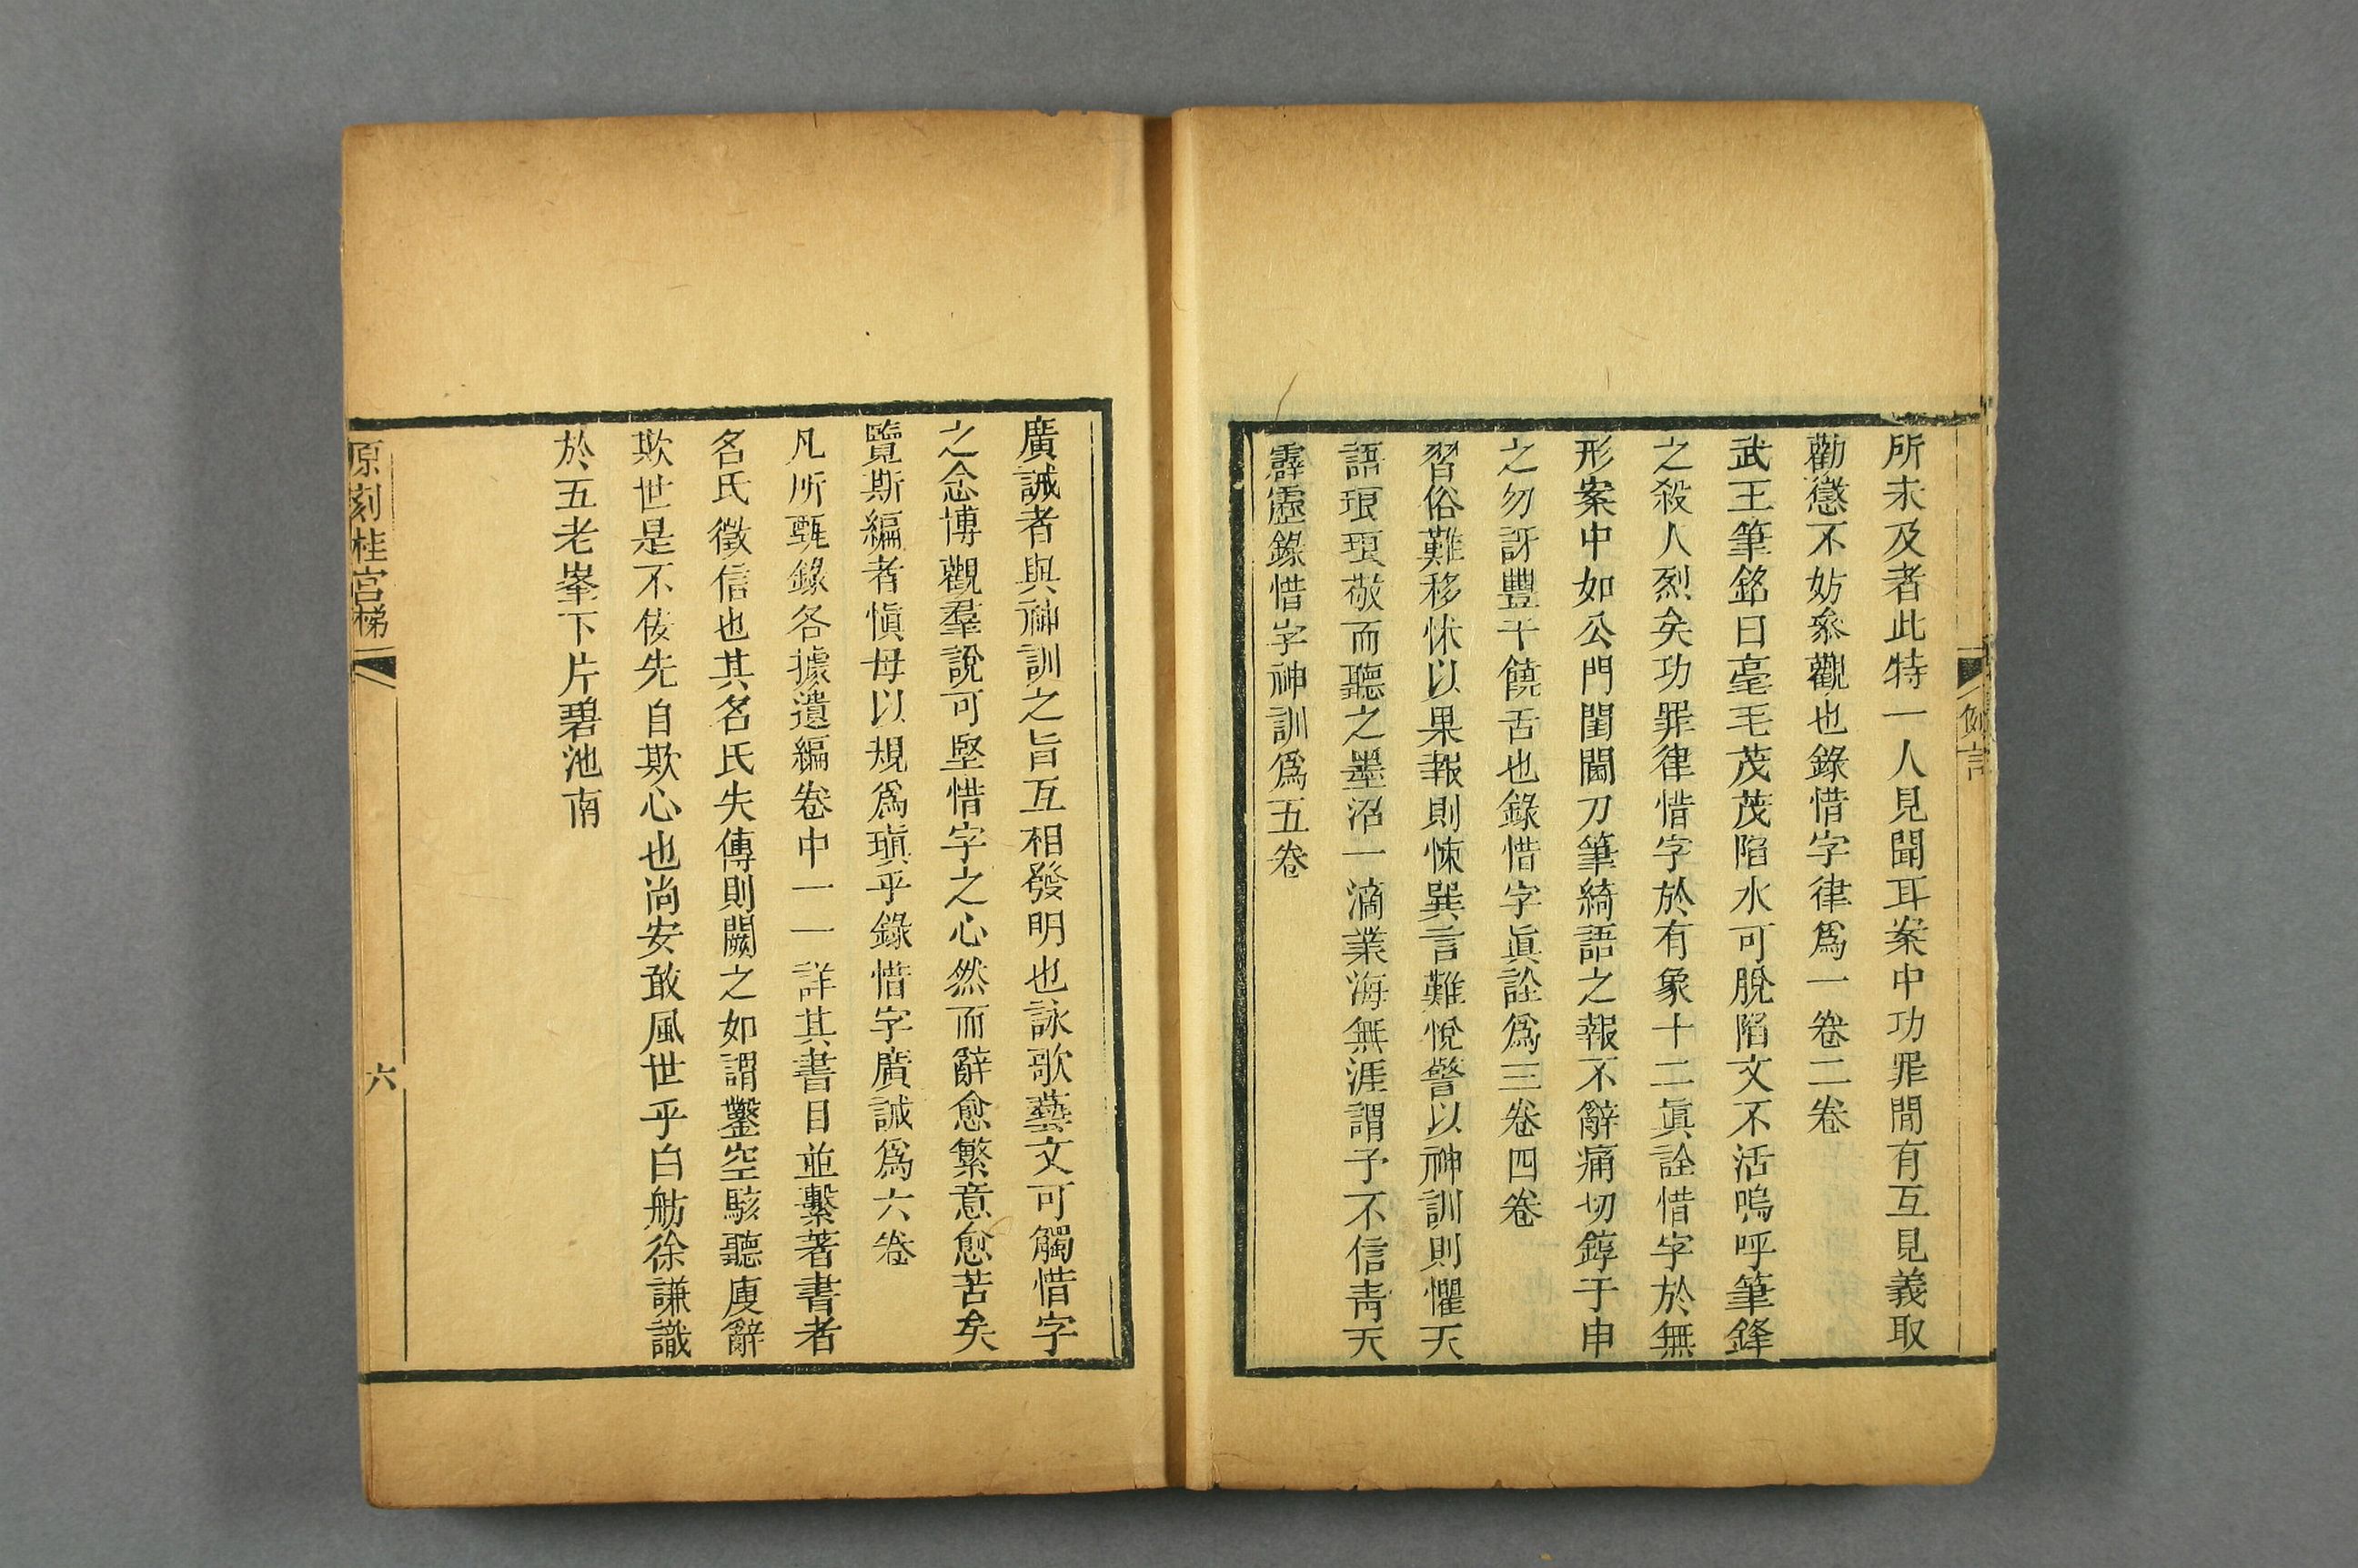 例言
所未及者此特一人見聞耳案中功罪間有互見義取
勸懲不妨叅觀也錄惜字律爲一卷二卷
武王筆銘曰毫毛茂茂陷水可脫陷文不活嗚呼筆鋒
之殺人烈矣功罪律惜字於有象十二眞詮惜字於無
形案中如公門閨閫刀筆綺語之報不辭痛切錞于申
之勿訝豐干饒舌也錄惜字眞詮爲三卷四卷
習俗難移怵以果報則悚巽言難悅警以神訓則懼天
語琅琅敬而聽之墨沼一滴業海無涯謂予不信靑天
霹靂錄惜字神訓爲五卷
廣誡者與神訓之旨互相發明也詠歌藝文可觸惜字
之念博觀羣說可堅惜字之心然而辭愈繁意愈苦矣
覽斯編者愼毋以規爲瑱乎錄惜字廣誡爲六卷
凡所甄錄各據遺編卷中一一詳其書目並繫著書者
名氏徵信也其名氏失傳則闕之如謂鑿空駭聽廋辭
欺世是不佞先自欺心也尚安敢風世乎白舫徐謙識
於五老峯下片碧池南
原刻桂宮梯
六